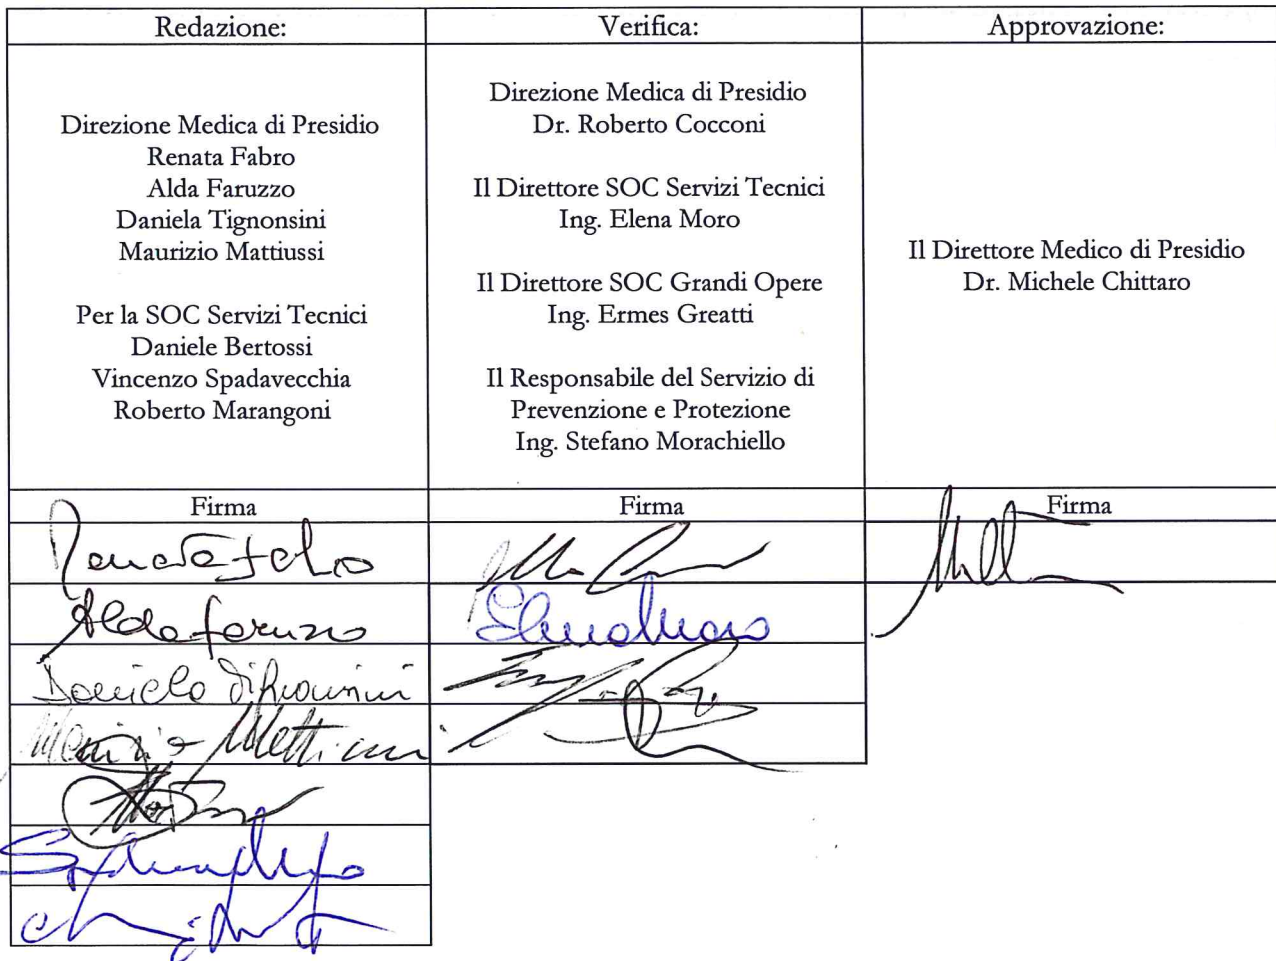 Redazione:
Verifica:
Approvazione:
Direzione Medica di Presidio
Renata Fabro
Alda Faruzzo
Daniela Tignonsini
Maurizio Mattiussi
Per la SOC Servizi Tecnici
Daniele Bertossi
Vincenzo Spadavecchia
Roberto Marangoni
Direzione Medica di Presidio
Dr. Roberto Cocconi
Il Direttore SOC Servizi Tecnici
Ing. Elena Moro
Il Direttore SOC Grandi Opere
Ing. Ermes Greatti
Il Responsabile del Servizio di
Prevenzione e Protezione
Ing. Stefano Morachiello
Il Direttore Medico di Presidio
Dr. Michele Chittaro
Firma
Firma
Firma
Renata Fabro
Alda Faruzzo
Daniela
Elena Moro